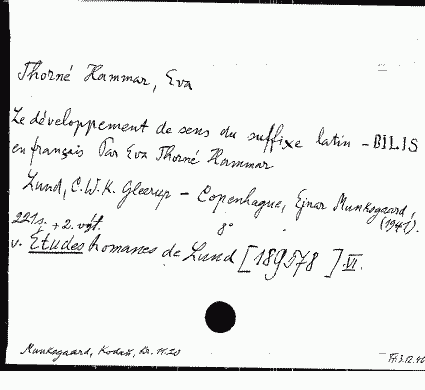 Thorné Hammar, Eva
Le développement de sens du suffixe latin -BILIS
en français Par Eva Thorné Hammar
Lund, C.W.K. Gleerup - Copenhague, Ejnar Munksgaard,
(1941).
221 s. + 2. 8°
v. Études Romanes de Lund [189578] VI.
Munksgaard, Kr. 11.20